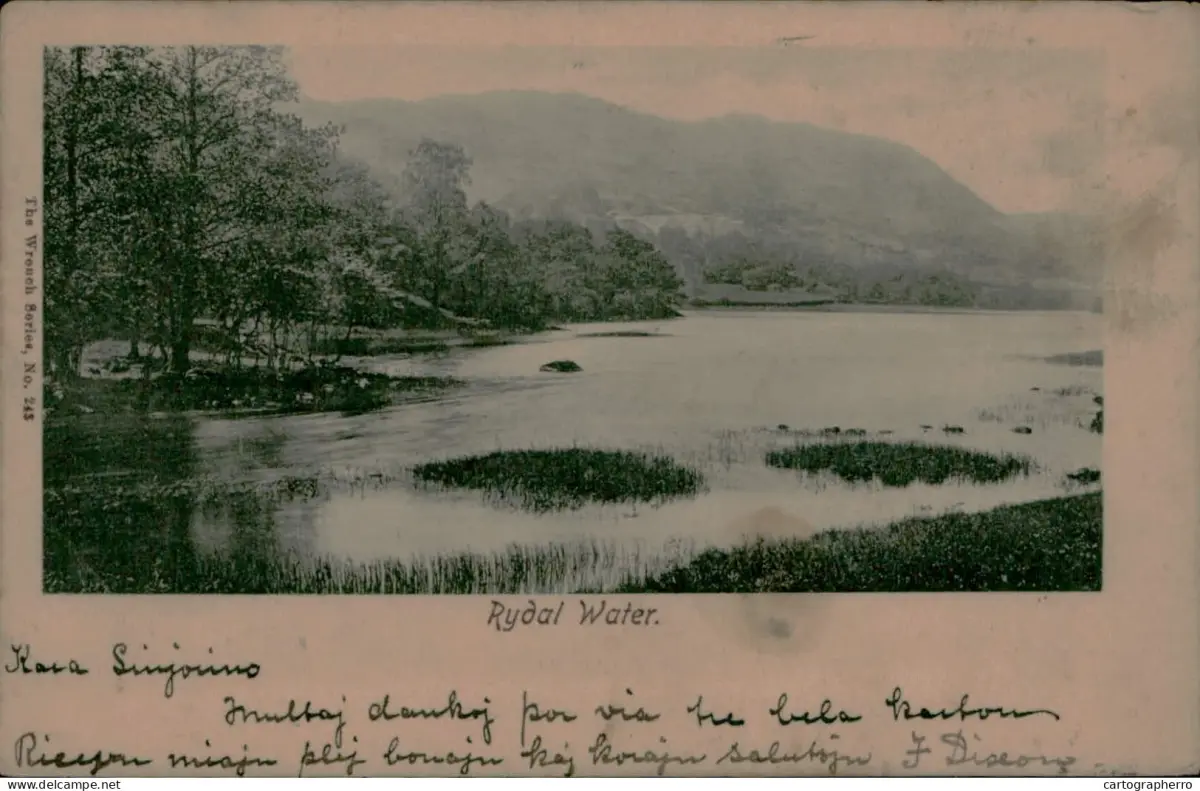 The Wrench Series, No. 243
Rydal Water.
Kara Sinjorino
Multaj dankoj por via tre bela karton
Ricevon miajn plej bonajn kaj korajn salutojn
cartographerro